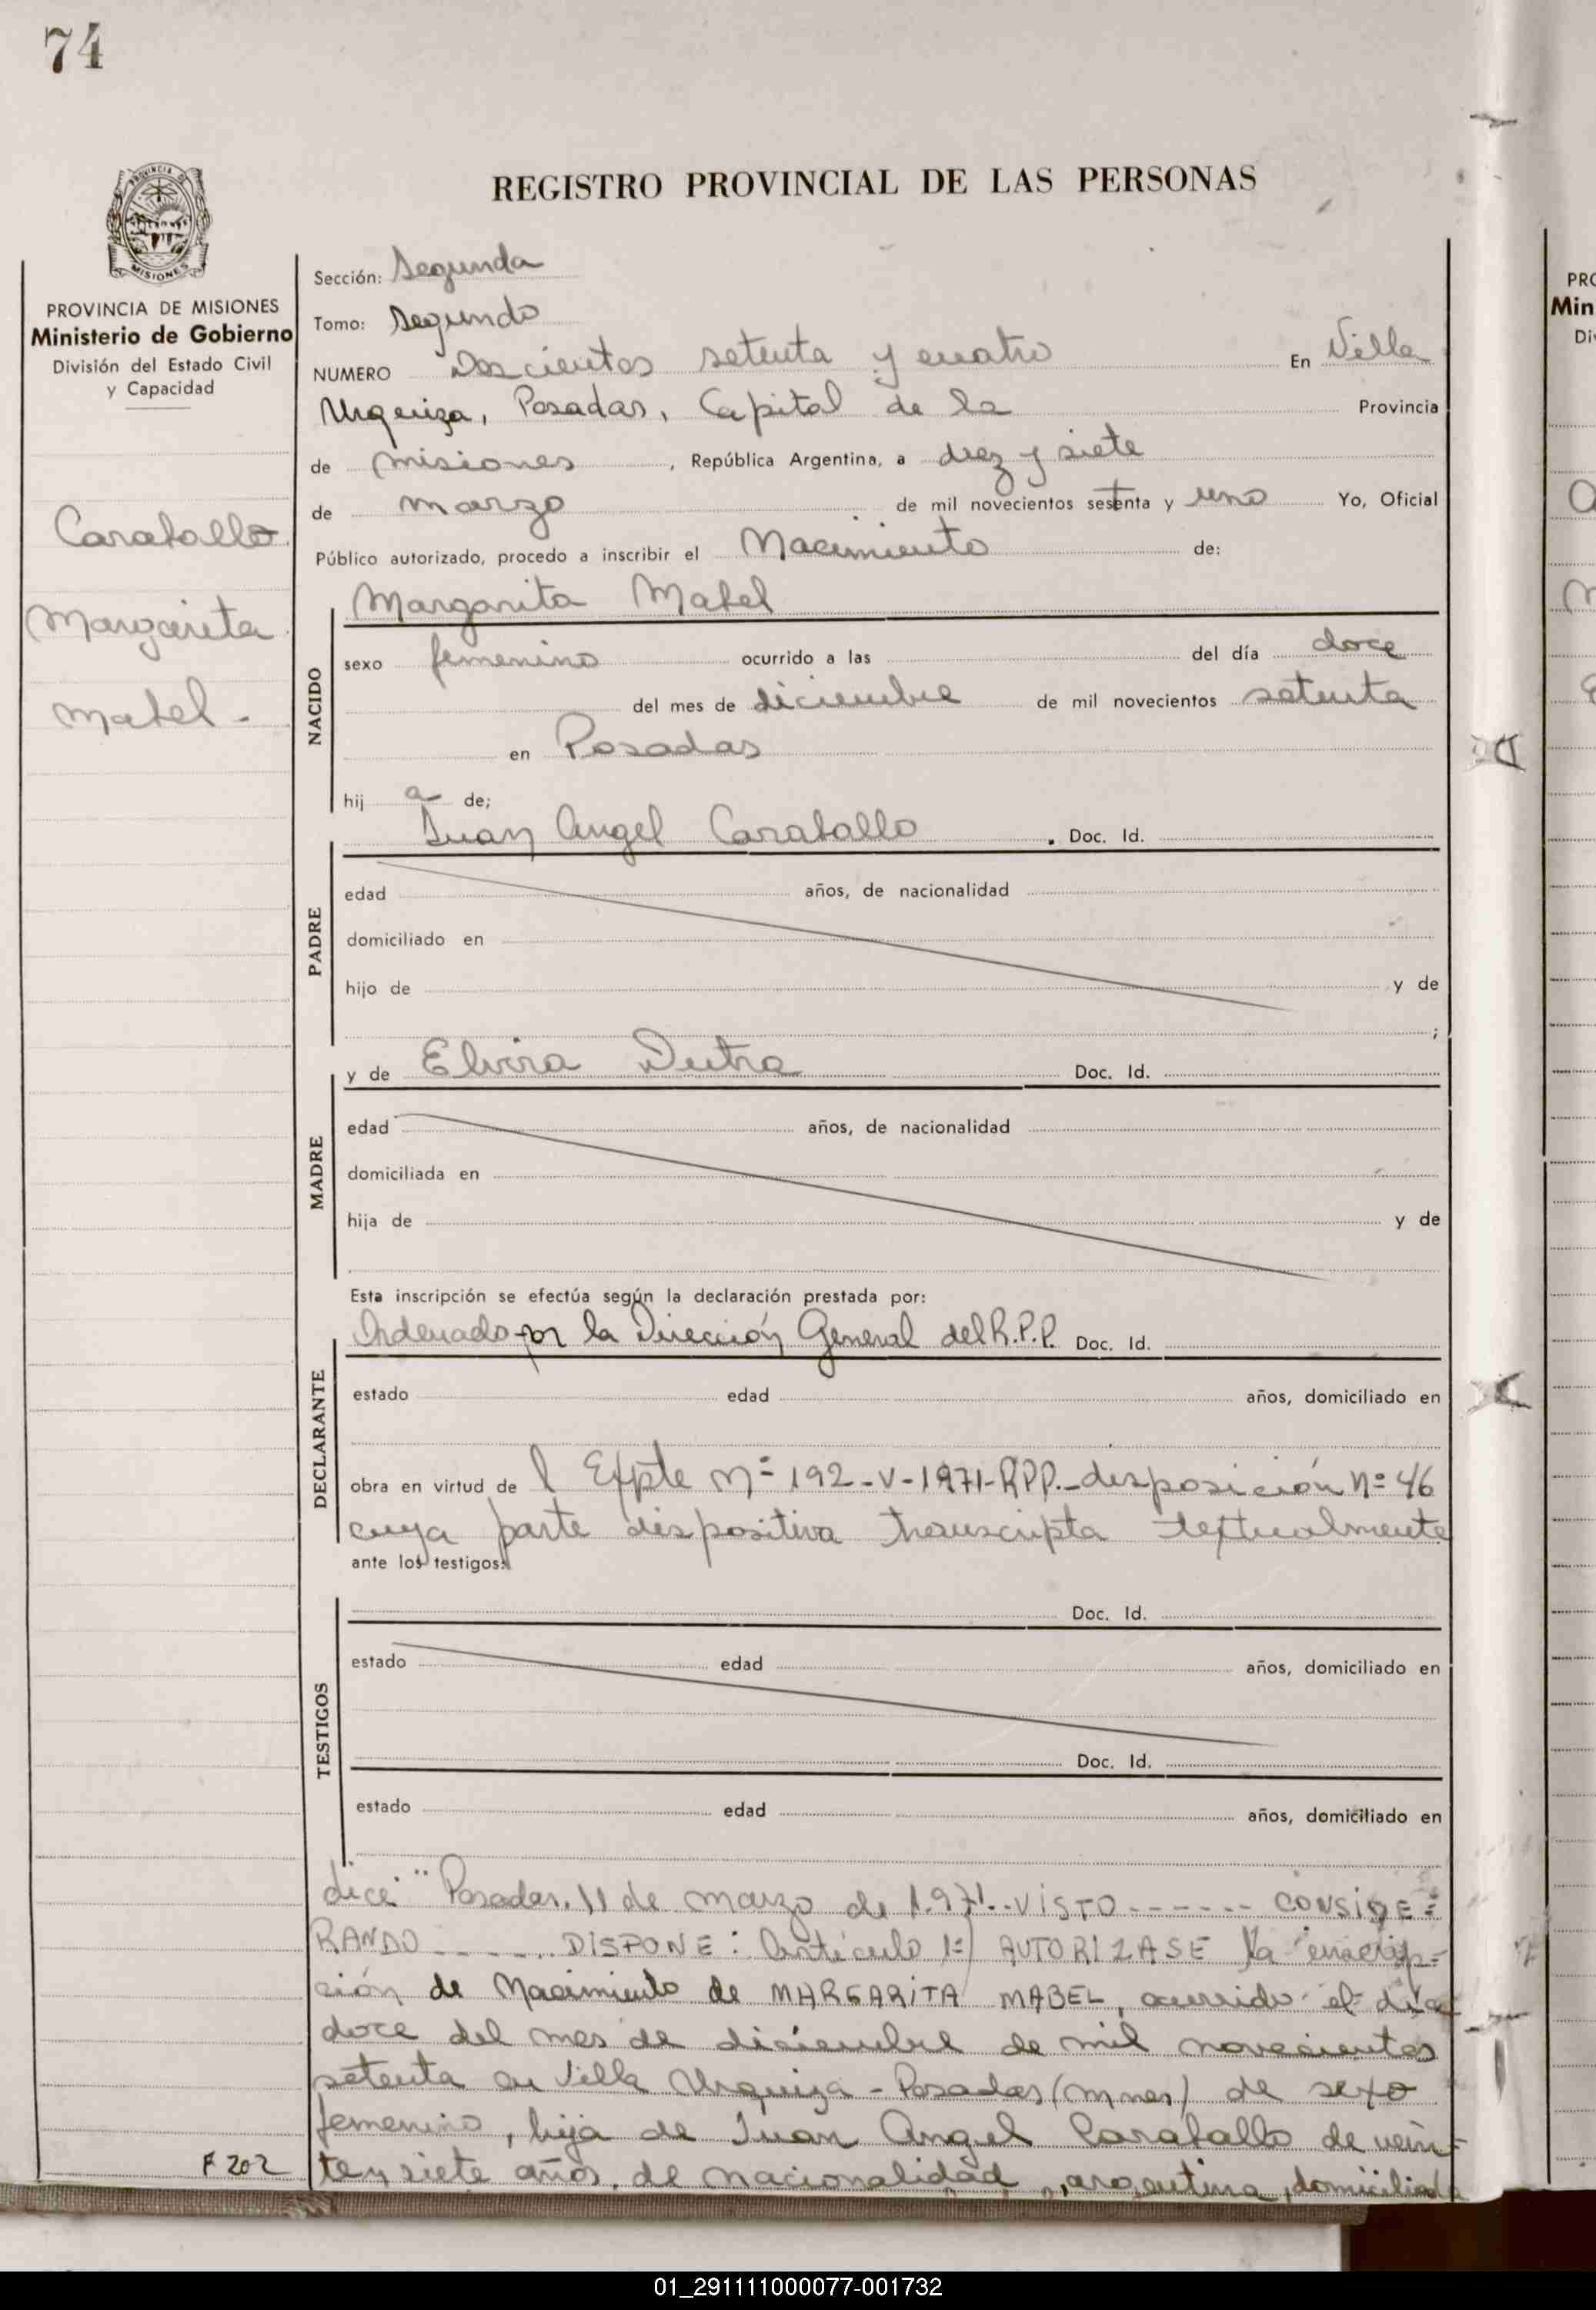 74
PROVINCIA DE
MISIONES
PROVINCIA DE MISIONES
Ministerio de Gobierno
División del Estado Civil
y Capacidad
Caraballo
Margarita
Mabel -
F 202
REGISTRO PROVINCIAL DE LAS PERSONAS
Sección: Segunda
Tomo: Segundo
NUMERO Doscientos setenta y cuatro En Villa
Urquiza, Posadas, Capital de la Provincia
de Misiones, República Argentina, a diez y siete
de marzo de mil novecientos setenta y uno Yo, Oficial
Público autorizado, procedo a inscribir el Nacimiento de:
Margarita Mabel
NACIDO
sexo femenino ocurrido a las del día doce
del mes de diciembre de mil novecientos setenta
en Posadas
hij a de;
Juan Angel Caraballo . Doc. Id.
PADRE
edad años, de nacionalidad
domiciliado en
hijo de y de
;
y de Elvira Dutra Doc. Id.
MADRE
edad años, de nacionalidad
domiciliada en
hija de y de
Esta inscripción se efectúa según la declaración prestada por:
Ordenado por la Dirección General del R.P.P. Doc. Id.
DECLARANTE
estado edad años, domiciliado en
obra en virtud de l Expte Nº 192-V-1971-RPP.- disposición Nº 46
cuya parte dispositiva transcripta textualmente
ante los testigos:
Doc. Id.
TESTIGOS
estado edad años, domiciliado en
Doc. Id.
estado edad años, domiciliado en
dice "Posadas, 11 de marzo de 1.971.- VISTO ------ CONSIDE=
RANDO ------ DISPONE: Artículo 1º) AUTORIZASE la inscrip=
ción de Nacimiento de MARGARITA MABEL, ocurrido el día
doce del mes de diciembre de mil novecientos
setenta en Villa Urquiza - Posadas (Mnes) de sexo
femenino, hija de Juan Angel Caraballo de vein-
te y siete años, de nacionalidad argentina, domiciliada
PRO
Min
Di
01_291111000077-001732